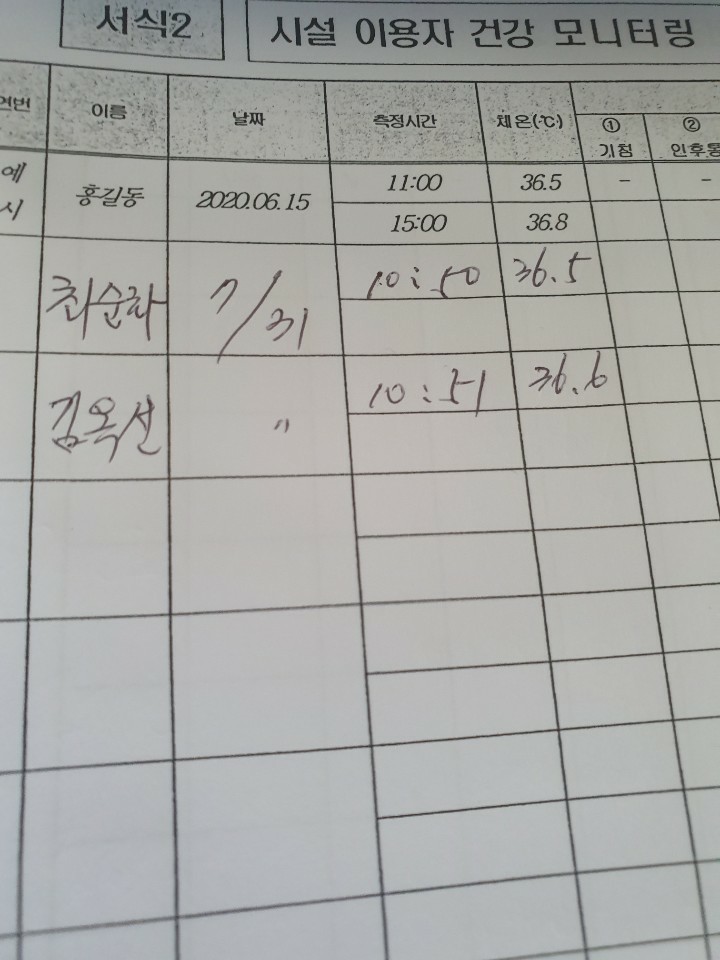 서식2 시설 이용자 건강 모니터링
연번 이름 날짜 측정시간 체온(℃) ① 기침 ② 인후통
예시 홍길동 2020.06.15 11:00 36.5 - -
15:00 36.8
최순화 7/31 10:50 36.5
김옥선 〃 10:51 36.6